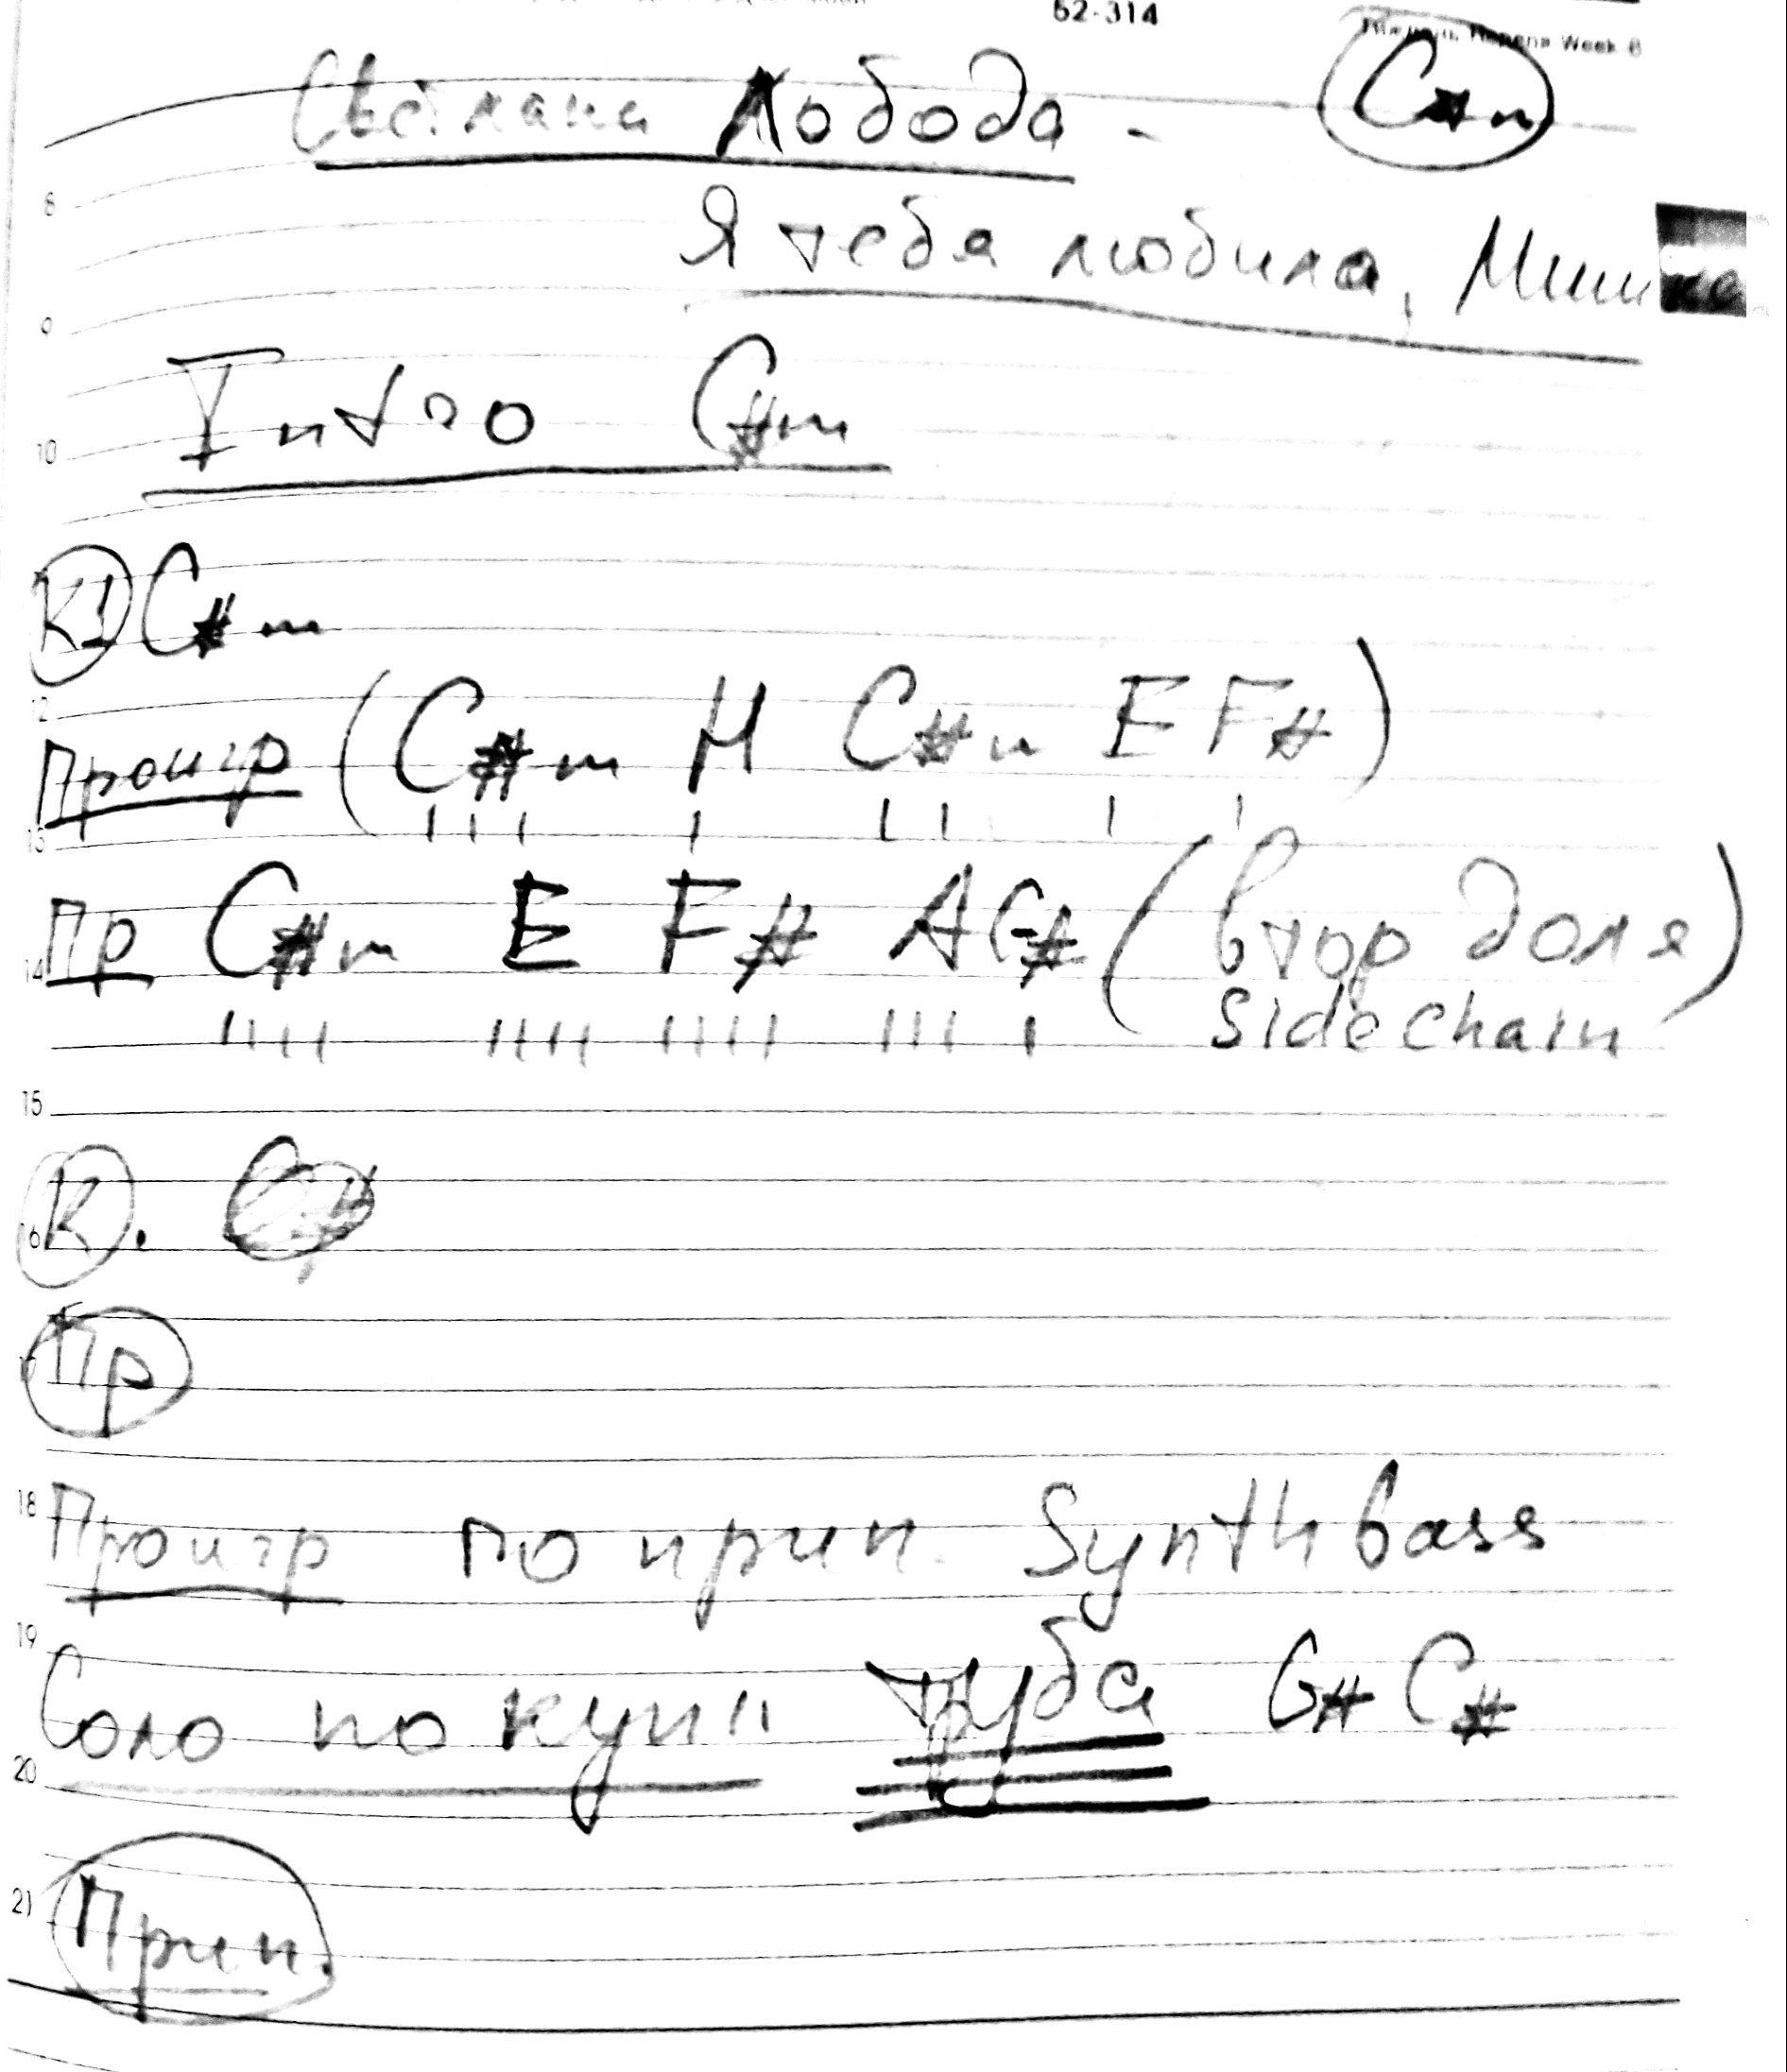 52-314
Week 6
Светлана Лобода - C#m
Я тебя любила, Мишка
8
9
Intro C#m
10
К1 C#m
12
Проигр (C#m H C#m E F#)
13
Пр C#m E F# A G# (втор доля)
14
Sidechain
15
К.
16
Пр
18
Проигр по прип. Synth bass
19
Соло по купл труба G# C#
20
21
Прип.